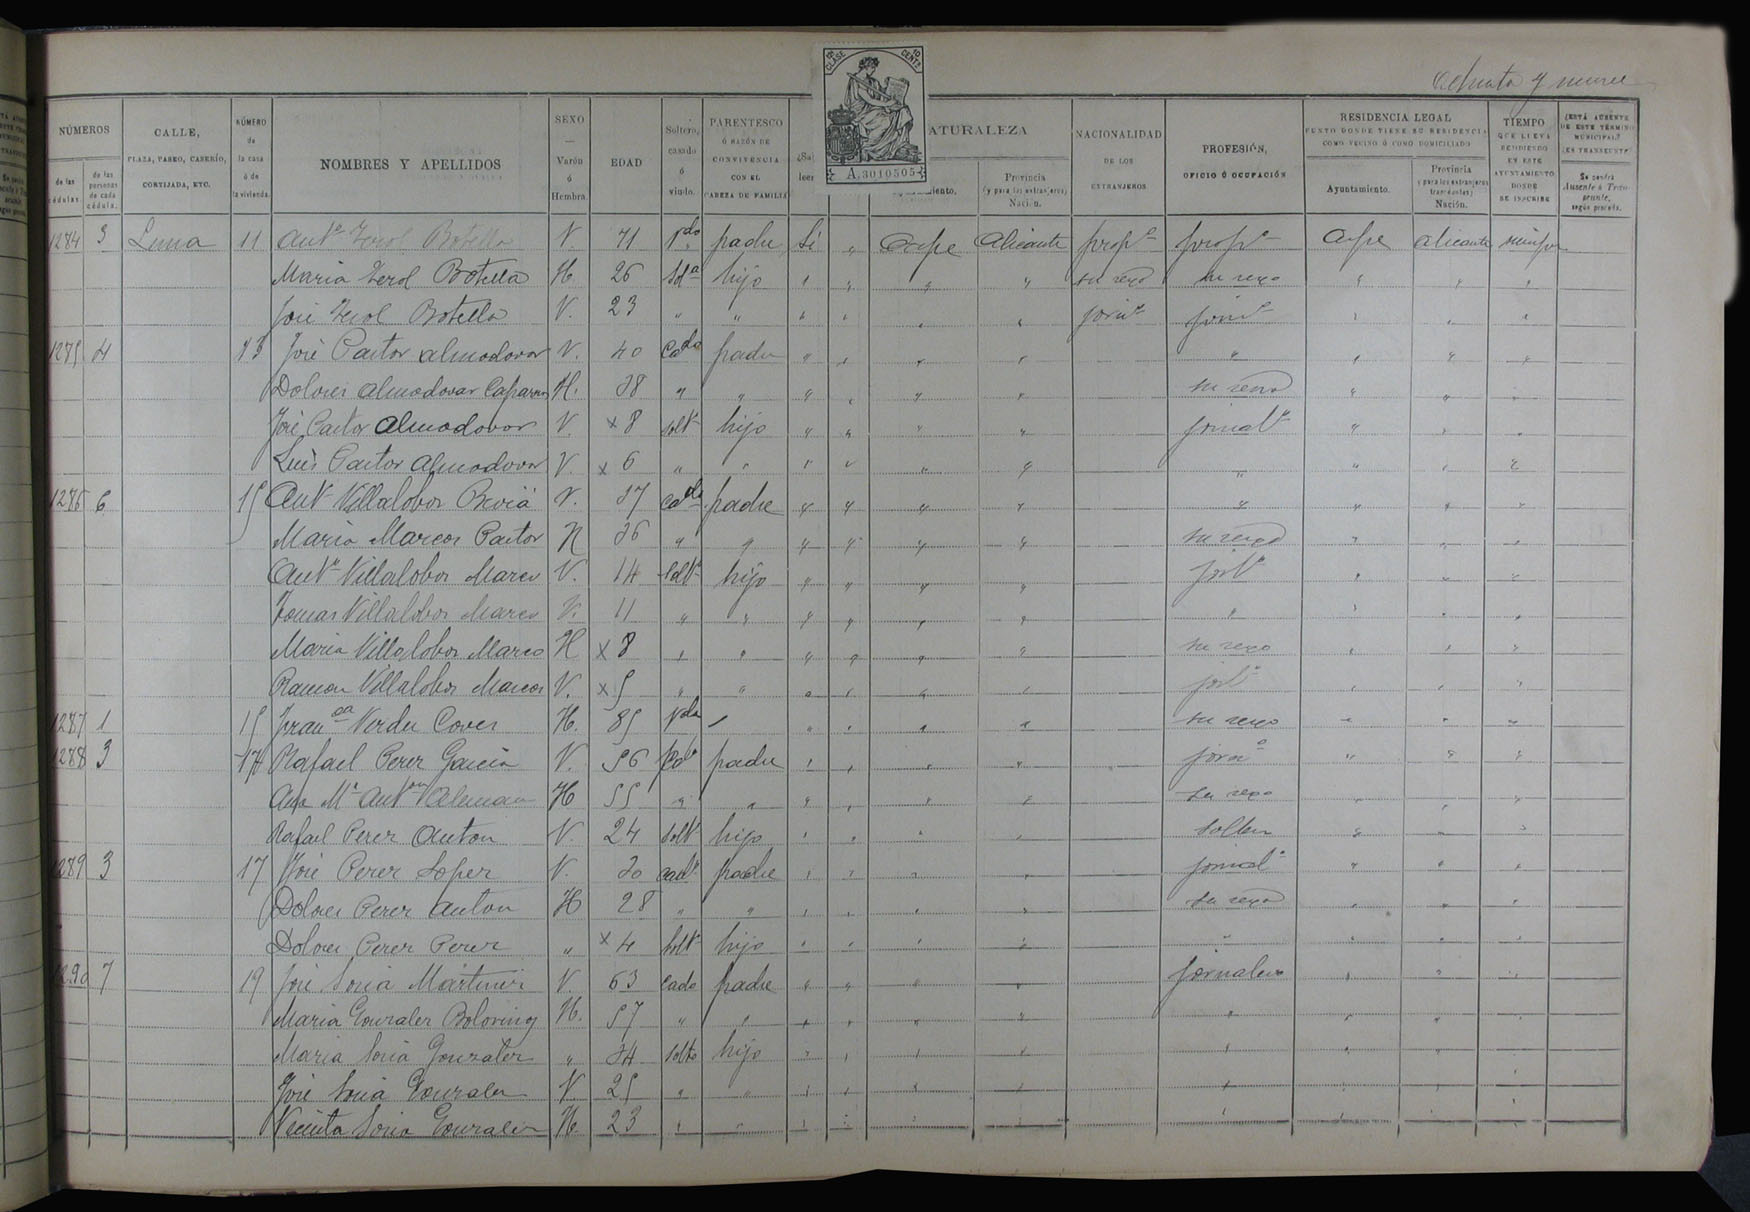 Ochenta y nueve
12ª CLASE
10 CENTS
A.3010505
NÚMEROS
de las cédulas.
de las personas de cada cédula.
CALLE,
PLAZA, PASEO, CASERÍO,
CORTIJADA, ETC.
NÚMERO
de
la casa
ó de
la vivienda.
NOMBRES Y APELLIDOS
SEXO
—
Varón
ó
Hembra.
EDAD
Soltero,
casado
ó
viudo.
PARENTESCO
Ó RAZÓN DE
CONVIVENCIA
CON EL
CABEZA DE FAMILIA
ATURALEZA
Provincia
(y para los extranjeros)
Nación.
NACIONALIDAD
DE LOS
EXTRANJEROS
PROFESIÓN,
OFICIO Ó OCUPACIÓN
RESIDENCIA LEGAL
PUNTO DONDE TIENE SU RESIDENCIA
COMO VECINO Ó COMO DOMICILIADO
Ayuntamiento.
Provincia
(y para los extranjeros
transeuntes)
Nación.
TIEMPO
QUE LLEVA
RESIDIENDO
EN ESTE
AYUNTAMIENTO
DONDE
SE INSCRIBE
¿ESTÁ AUSENTE
DE ESTE TÉRMINO
MUNICIPAL?
¿ES TRANSEUNTE?
Se pondrá
Ausente ó Transeunte,
según proceda.
1284 3 Luna 11 Antº Zerol Botella V. 71 Vdo padre Si " Aspe Alicante propº propº Aspe Alicante siempre
Maria Zerol Botella H. 26 Solª hijo " " " " su sexo su sexo " " "
José Zerol Botella V. 23 " " " " " " jornº jornº " " "
1285 4 13 José Pastor Almodovar V. 40 Cado padre " " " " " " " "
Dolores Almodovar Caparros H. 38 " " " " " " su sexo " " "
José Pastor Almodovar V. x 8 soltº hijo " " " " jornalº " " "
Luis Pastor Almodovar V. x 6 " " " " " " " " " "
1286 6 15 Antº Villalobos Beviá V. 37 Cado padre " " " " " " " "
Maria Marcos Pastor H 36 " " " " " " su sexo " " "
Antº Villalobos Marco V. 14 Soltº hijo " " " " jorlº " " "
Tomas Villalobos Marco V. 11 " " " " " " " " " "
Maria Villalobos Marco H x 8 " " " " " " su sexo " " "
Ramon Villalobos Marcos V. x 5 " " " " " " jorlº " " "
1287 1 15 Franca Verdu Cover H. 85 Vda " " " " su sexo " " "
1288 3 17 Rafael Perez Garcia V. 56 Cdº padre " " " " jornº " " "
Ana Mª Anton Aleman H 55 " " " " " " su sexo " " "
Rafael Perez Anton V. 24 Soltº hijo " " " " " " "
1289 3 17 José Perez Lopez V. 30 cadº padre " " " " jornalº " " "
Dolores Perez Anton H 28 " " " " " " su sexo " " "
Dolores Perez Perez " x 4 Soltº hijo " " " " " " " "
1290 7 19 José Soria Martinez V. 63 Cado padre " " " " jornalero " " "
Maria Gonzalez H. 57 " " " " " " " " " "
Maria Soria Gonzalez " 34 Solto hijo " " " " " " " "
José Soria Gonzalez V. 25 " " " " " " " " " "
Vicenta Soria Gonzalez H. 23 " " " " " " " " " "